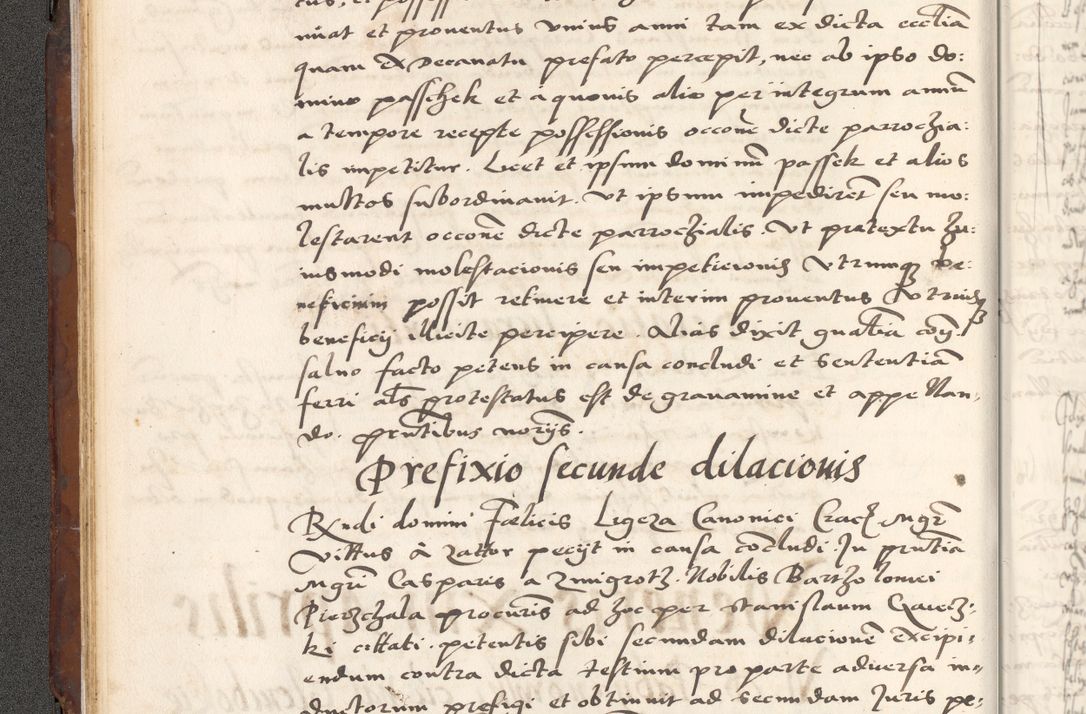 nuat et proventus unius anni tam ex dicta eccliā
quam Ex Decanatu prefato percepit, nec ab ipso do:
mino passchek et a quovis alio per integrum annū
a tempore recepte possessionis occone dicte parrochia:
lis impetitur. Licet et ipsum dominū passek et alios
multos subordinavit. Ut ipsum impedirēt seu mo:
lestarent occone dicte parrochialis. Ut pretextu hu:
iusmodi molestacionis seu impeticionis Utrumque be:
neficium possit retinere et interim proventus Utriusque
beneficij illicite percipere. Alias dixit
salvo facto petens in causa concludi et sententiā
ferri als protestatus est de gravamine et appellan,
do. pntibus norijs.
Prefixio secunde dilacionis
Rndi domini Fœlicis Ligeza Canonici Crac Mgr
Vittus à Zattor pecijt in causa cōcludi. In pntia
Mgri Casparis a Zmigrotz. Nobilis Bartholomei
Pierzchala procuris ad hoc per Stanislaum
ki cittati. petentis sibi secundam dilacionē excipi,
endum contra dicta testium pro parte adversa in,,
ductorum prefigi et obtinuit ad secundam Juris pe: